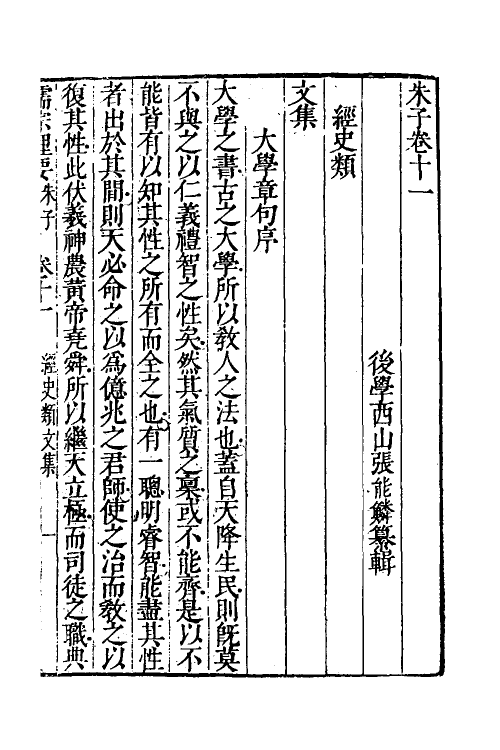 朱子卷十一
後學西山張能鱗纂輯
經史類
文集
大學章句序
大學之書古之大學所以敎人之法也蓋自天降生民則旣莫
不與之以仁義禮智之性矣然其氣質之稟或不能齊是以不
能皆有以知其性之所有而全之也有一聰明睿智能盡其性
者出於其間則天必命之以爲億兆之君師使之治而敎之以
復其性此伏羲神農黃帝堯舜所以繼天立極而司徒之職典
儒宗理要 朱子 卷十一 經史類文集 一